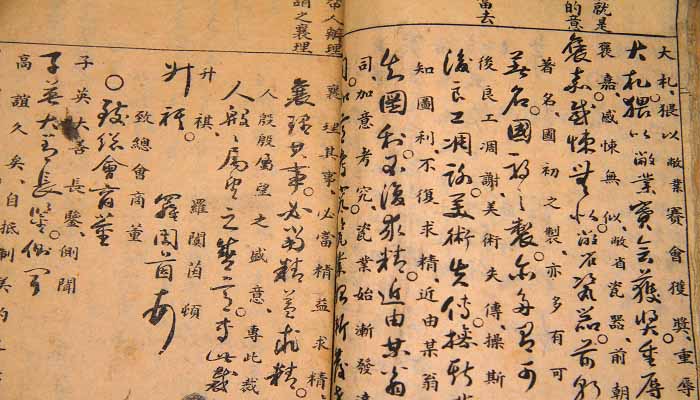 就是
的意
當去
大札。猥以敝業賽會獲獎。重辱
大札。猥以敝業賽會獲獎重辱
褒嘉。感悚無似。敝省瓷器。前朝
褒嘉感悚無似敝省瓷器前朝
著名。國初之製。亦多有可
著名國初之製。亦多有可
後良工凋謝。美術失傳。操斯
後良工凋謝美術失傳操斯
知圖利。不復求精。近由某翁
知圖利不復求精近由某翁
司。加意考究。瓷業始漸發達
人辦理
謂之襄理
襄理其事。必當精益求精
襄理其事。必當精益求精
人殷殷屬望之盛意。專此裁
人殷殷屬望之盛意專此裁
升祺 羅閩茵頓
升祺 羅閩茵頓
致總會商董
○致總會商董
子英大善長鑒側聞
子英大善長鑒側聞
高誼久矣。自抵制美約